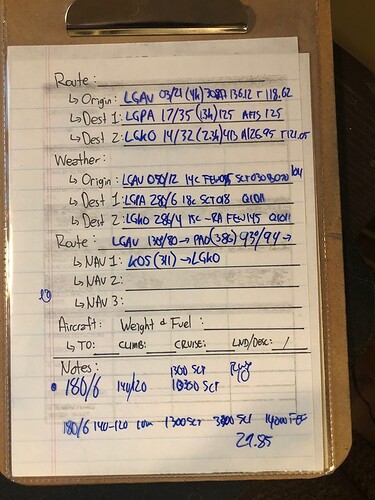 Route:
↳ Origin: LGAV 03/21 (4k) 308ft 136.12 T 118.62
↳ Dest 1: LGPA 17/35 (234) 125 AFIS 125
↳ Dest 2: LGKO 14/32 (234) 413 A126.95 T121.05
Weather:
↳ Origin: LGAV 050/12 14c FEW015 SCT030 BO20
↳ Dest 1: LGPA 280/6 18c SCT018 Q1011
↳ Dest 2: LGKO 286/4 15c -RA FEW45 Q1011
Route: LGAV 130/80 → PAO (386) 93°/94 →
↳ NAV 1: KOS (311) → LGKO
↳ NAV 2:
↳ NAV 3:
Aircraft: Weight & Fuel:
↳ TO: CLIMB: CRUISE: LND/DESC: /
Notes: 1300 SCT
180/6 140/20 SCT
180/6 140-120 10km 1300 SCT 3800 SCT 14000 FEW
29.85